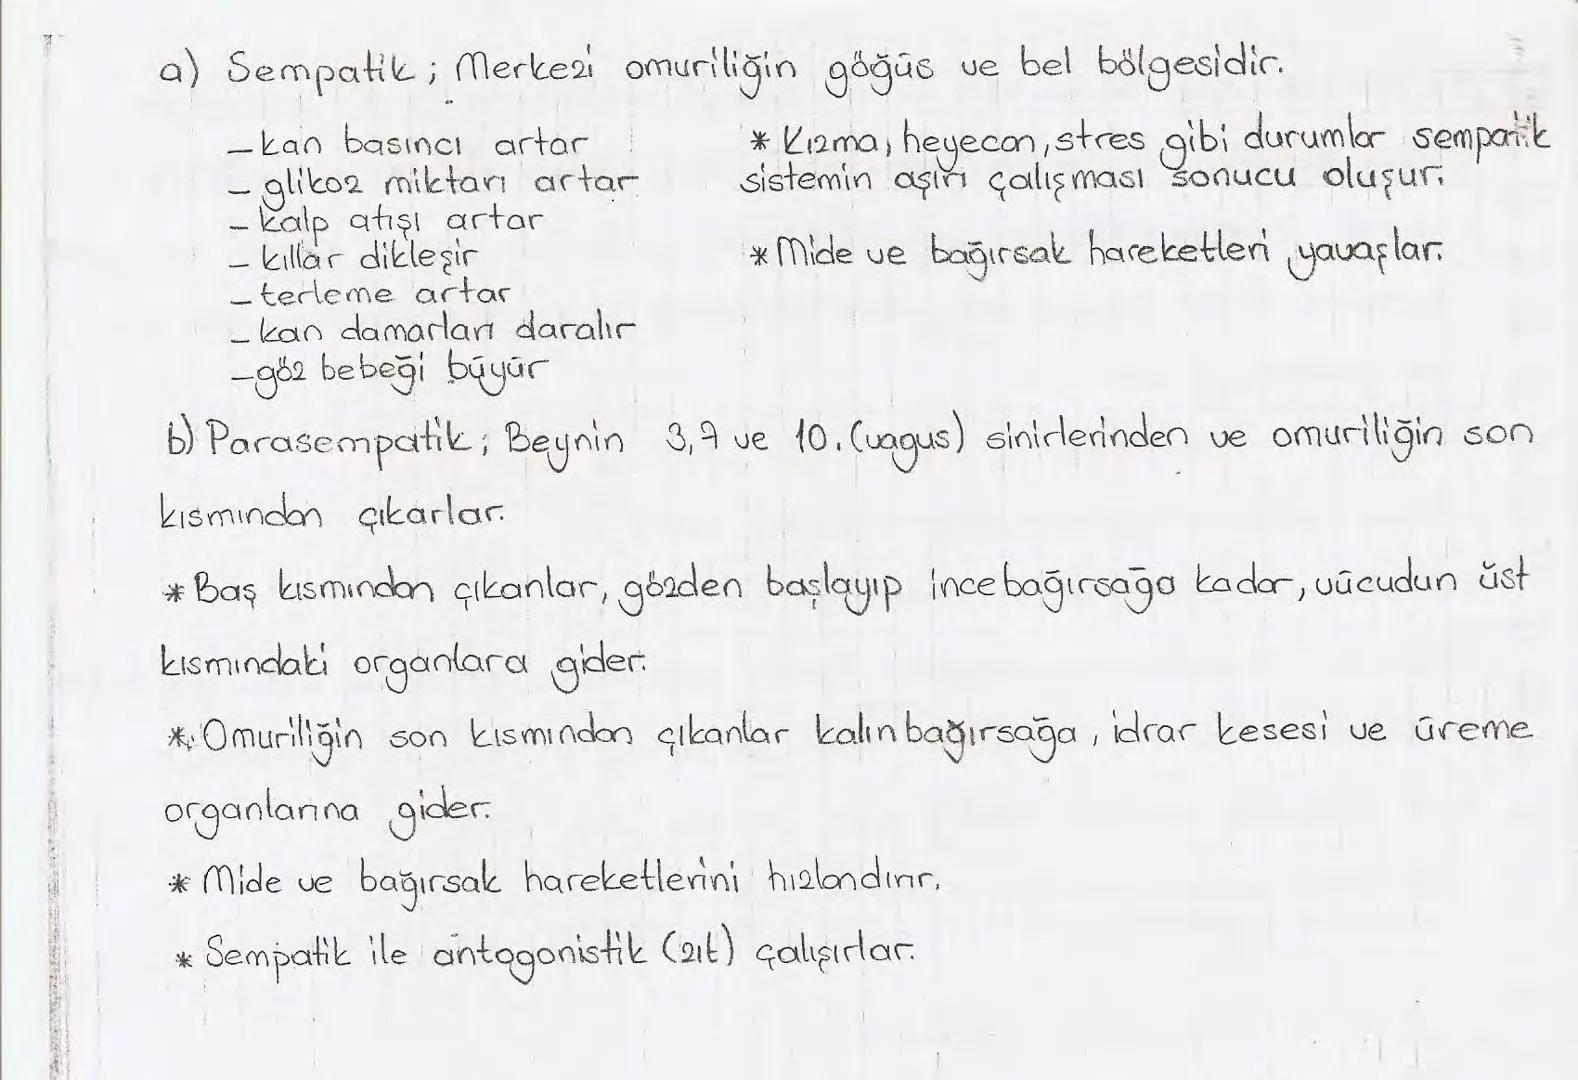 a) Sempatik; Merkezi omuriliğin göğüs ve bel bölgesidir.
- kan basıncı artar
- glikoz miktarı artar
- kalp atışı artar
- kıllar dikleşir
- terleme artar
- kan damarları daralır
- göz bebeği büyür
* Kızma, heyecan, stres gibi durumlar sempatik
sistemin aşırı çalışması sonucu oluşur.
* Mide ve bağırsak hareketleri yavaşlar.
b) Parasempatik; Beynin 3, 9 ve 10. (vagus) sinirlerinden ve omuriliğin son
kısmından çıkarlar.
* Baş kısmından çıkanlar, gözden başlayıp ince bağırsağa kadar, vücudun üst
kısmındaki organlara gider.
* Omuriliğin son kısmından çıkanlar kalın bağırsağa, idrar kesesi ve üreme
organlarına gider.
* Mide ve bağırsak hareketlerini hızlandırır.
* Sempatik ile antogonistik (zıt) çalışırlar.